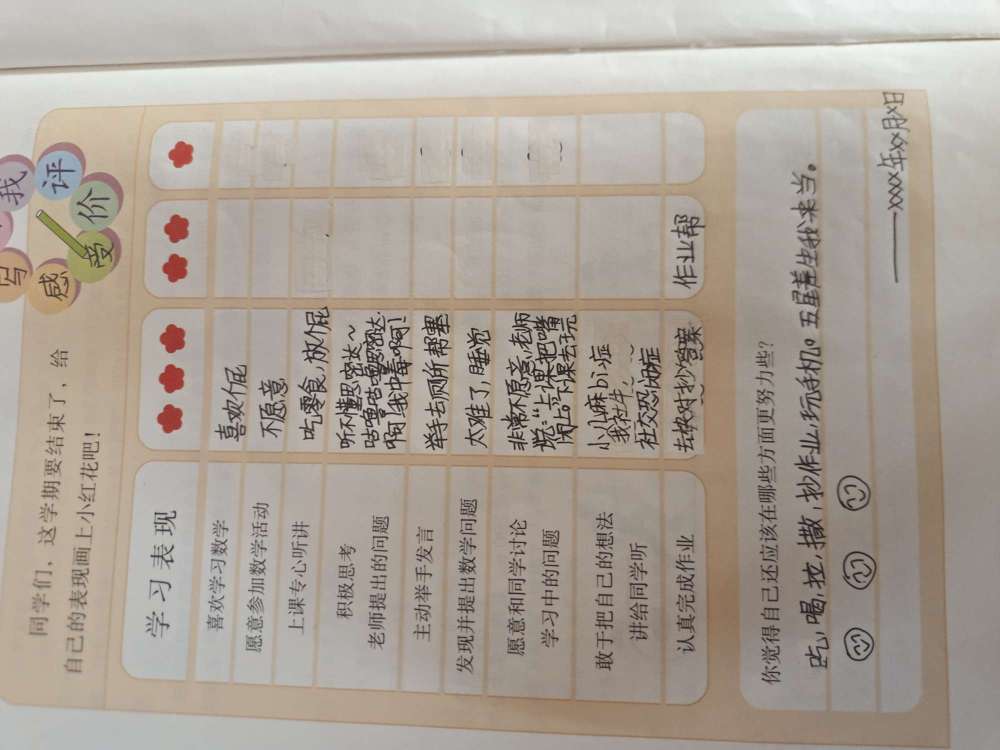 写
我
感
评
受
价
同学们，这学期要结束了，给
自己的表现画上小红花吧！
学习表现
喜欢学习数学
喜欢个屁
愿意参加数学活动
不愿意
上课专心听讲
吃零食，放个屁
积极思考
老师提出的问题
听不懂思密达~
咕噜咕噜思密达
啊！我中毒啊！
主动举手发言
举手去厕所帮塞
发现并提出数学问题
太难了，睡觉
愿意和同学讨论
学习中的问题
非常不愿意，老师
说：“上课把嘴
闭上”下课去玩
敢于把自己的想法
讲给同学听
小小麻bi症
我社牛，
社交恐怕症
认真完成作业
去校对抄答案
作业帮
你觉得自己还应该在哪些方面更努力些？
吃，喝，拉，撒，抄作业，玩手机。五星差生我来当。
——xxxx年xx月x日